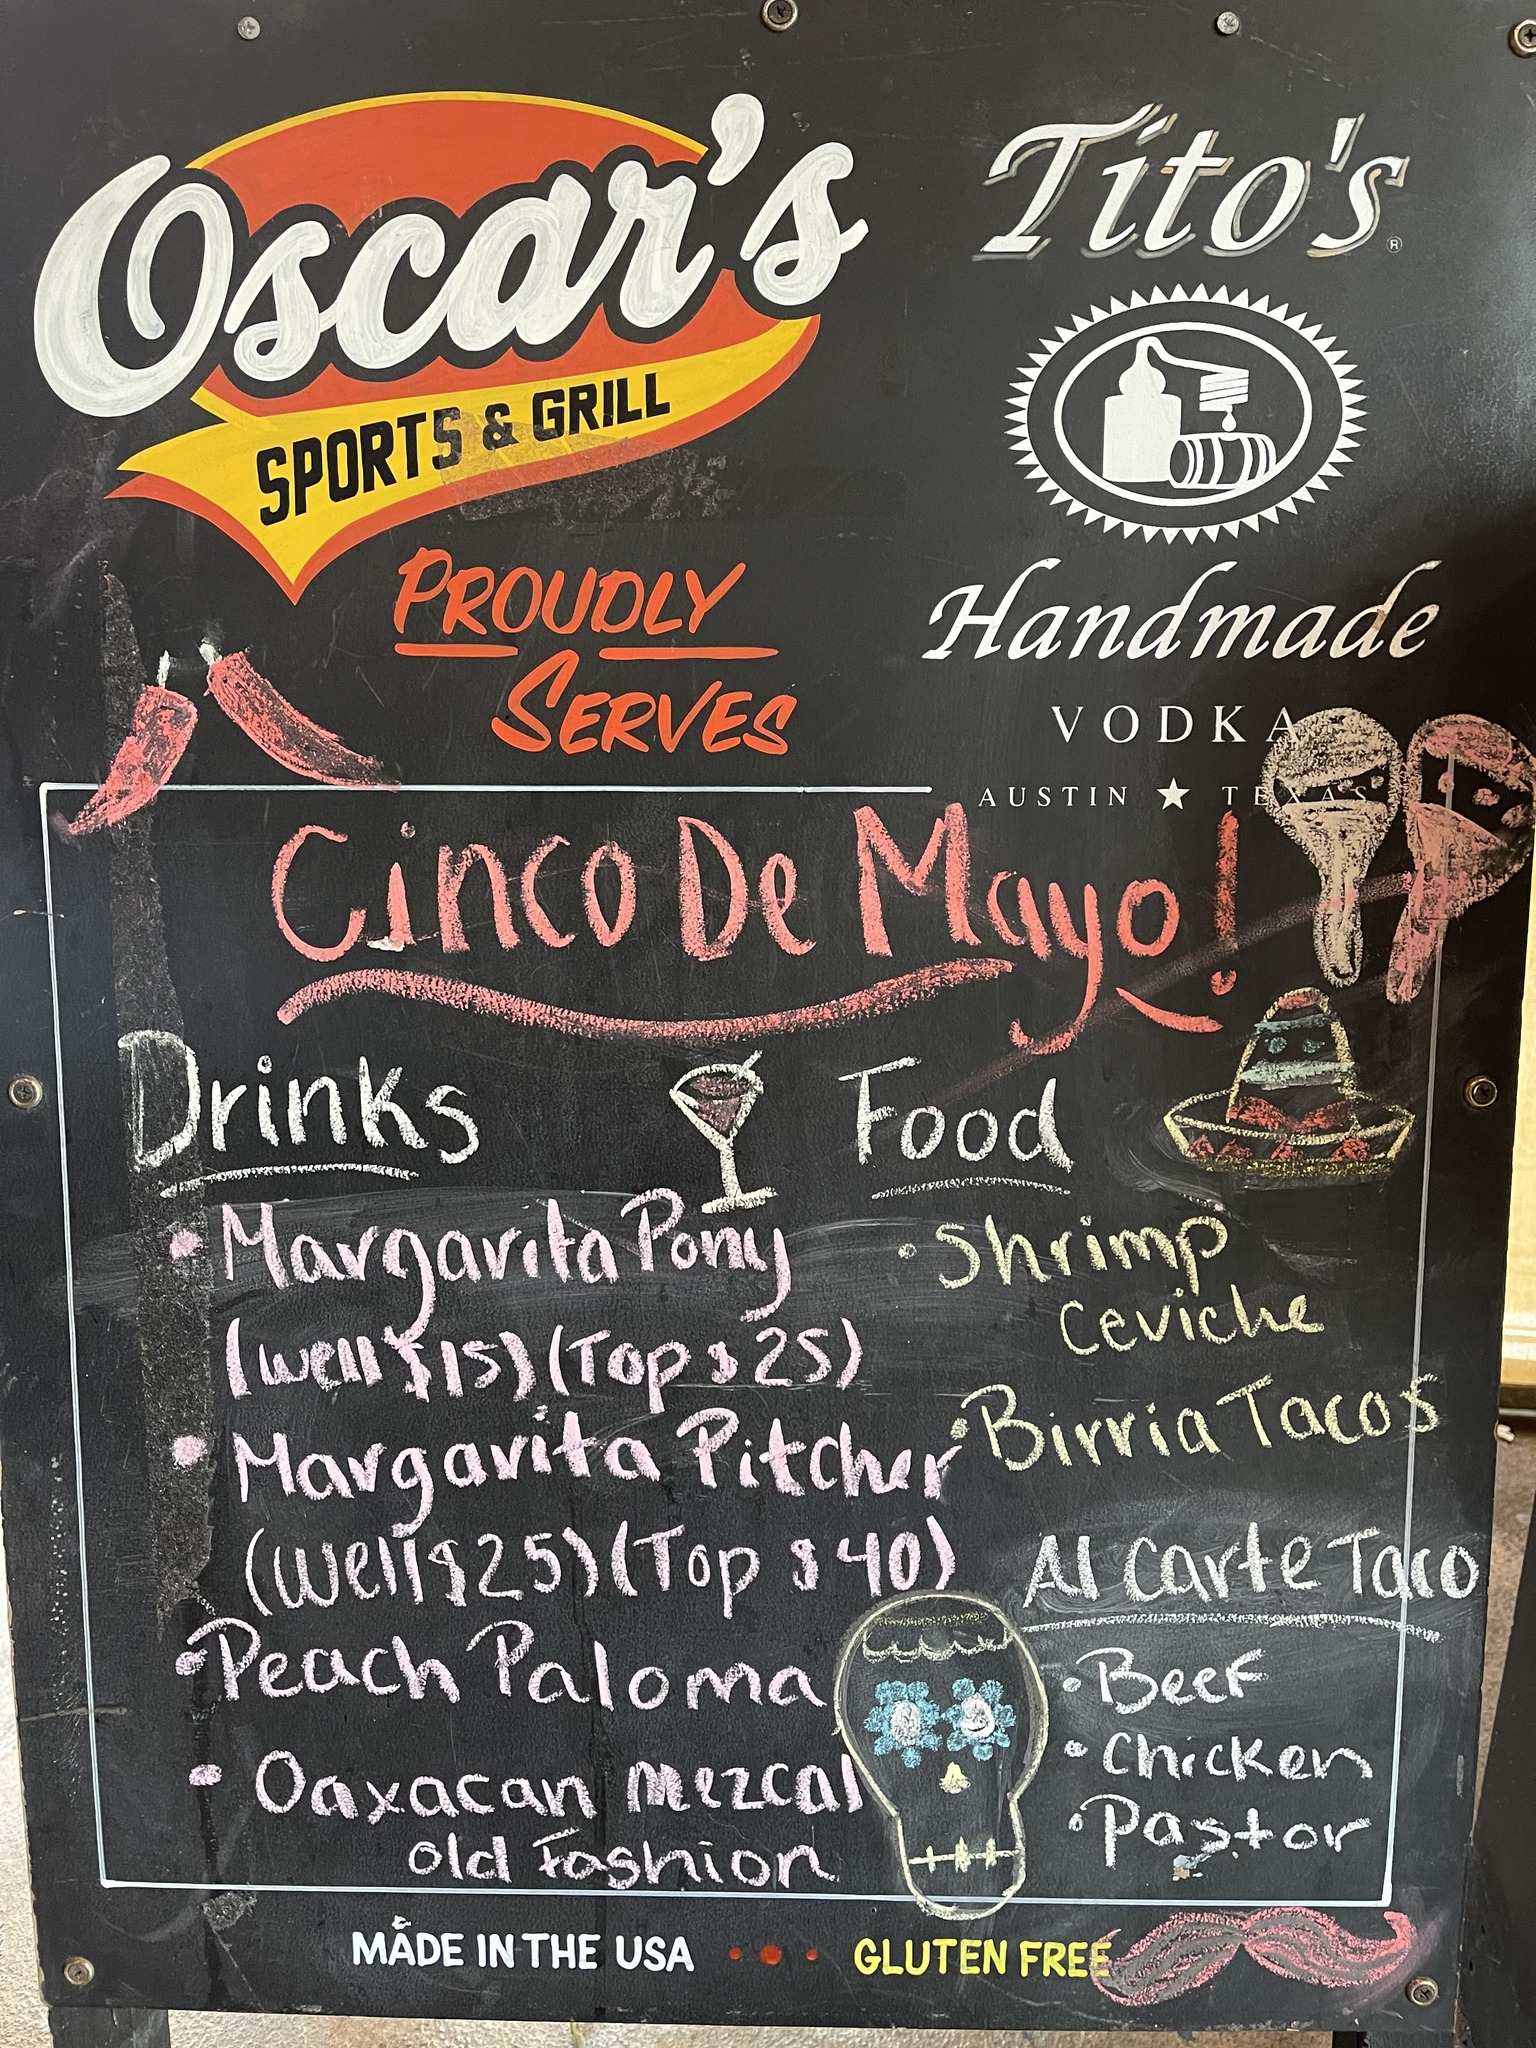 Oscar's
SPORTS & GRILL
PROUDLY
SERVES
Tito's®
Handmade
VODKA
AUSTIN ★ TEXAS
Cinco De Mayo!
Drinks
• Margarita Pony
(well $15) (Top $25)
• Margarita Pitcher
(Well $25) (Top $40)
• Peach Paloma
• Oaxacan mezcal
old Fashion
Food
• Shrimp
Ceviche
• Birria Tacos
Al Carte Taco
• Beef
• Chicken
• Pastor
MADE IN THE USA • • • GLUTEN FREE